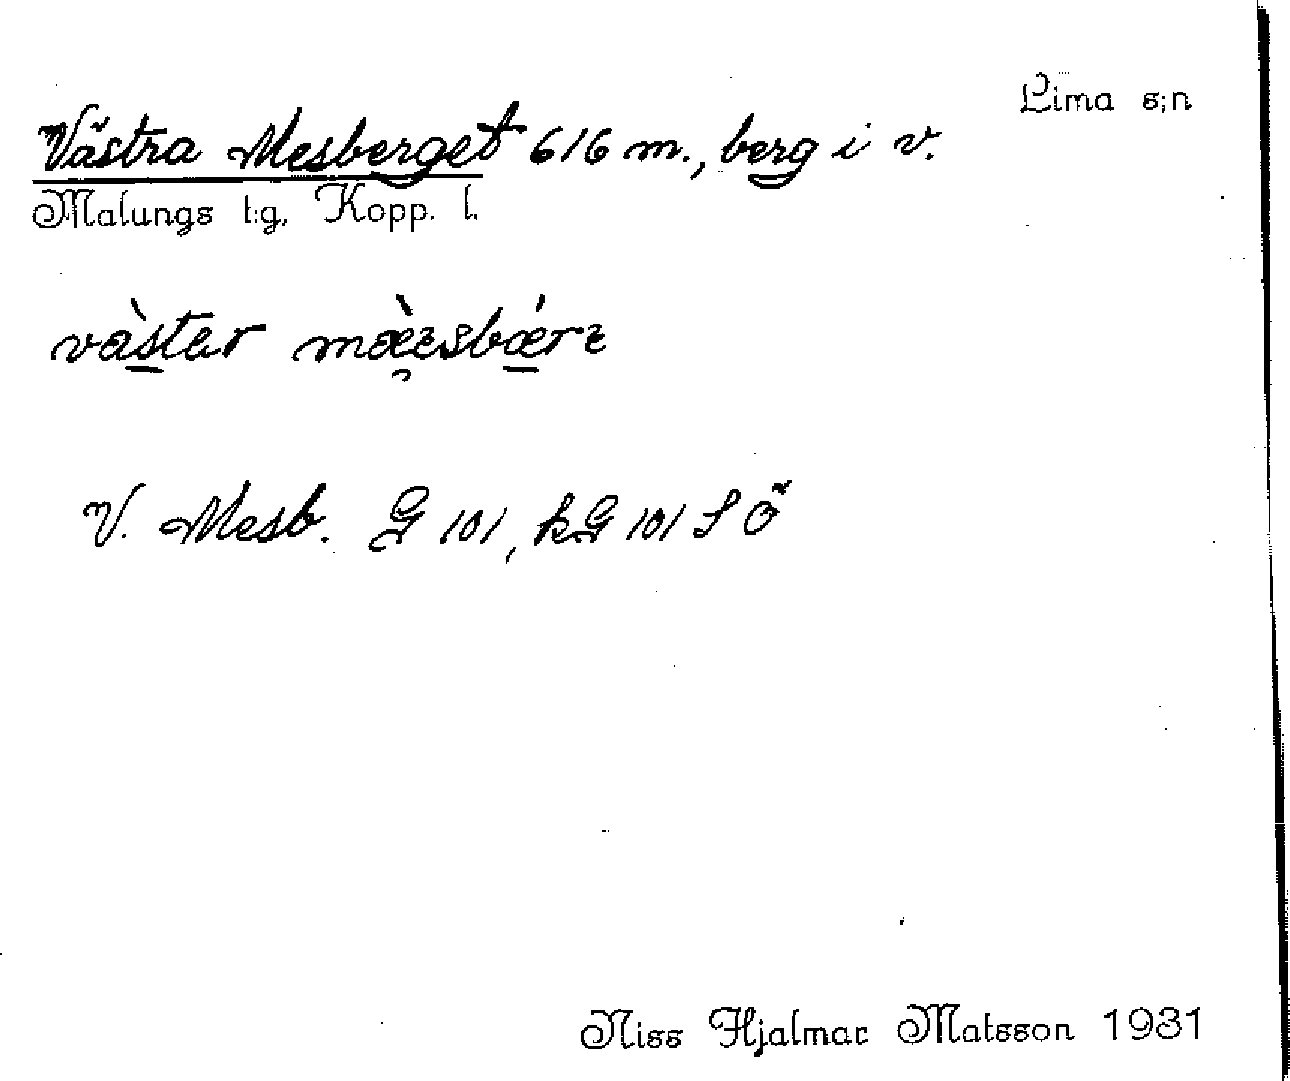 Lima s:n
Västra Mesberget 616 m., berg i v.
Malungs t:g, Kopp. l.
vàstar mæ̀ɛsbǽrɛ
V. Mesb. G 101, kG 101 S Ö
Niss Hjalmar Matsson 1931